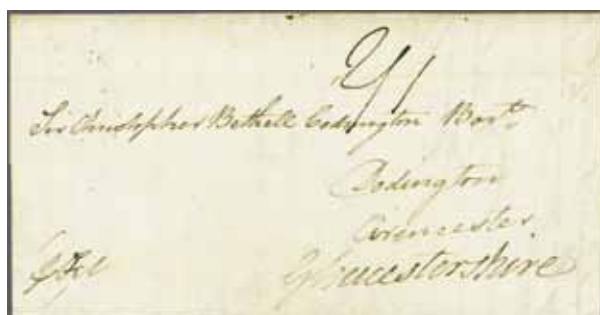 Sir Christopher Bethell Codrington Bart.
Dodington
Cirencester
Gloucestershire